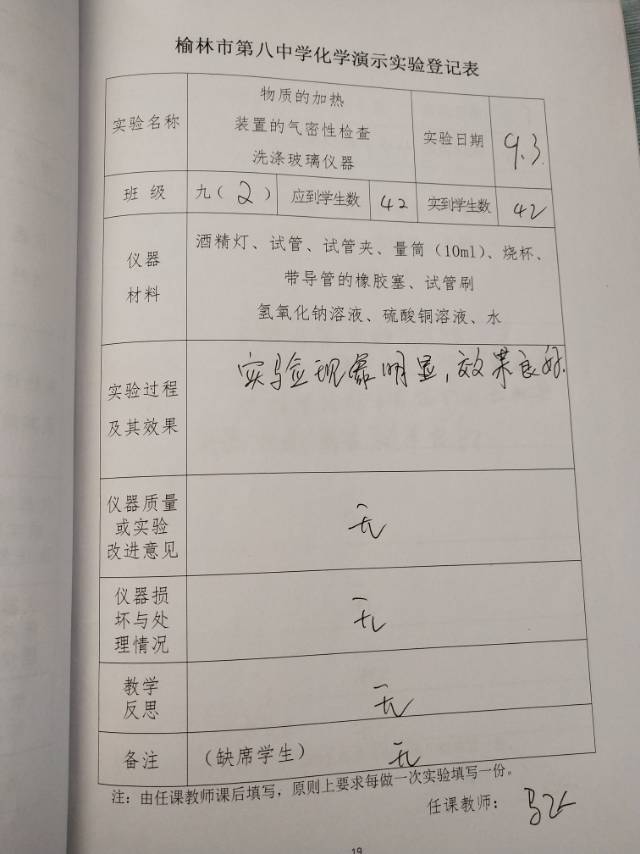 榆林市第八中学化学演示实验登记表
实验名称
物质的加热
装置的气密性检查
洗涤玻璃仪器
实验日期
9.3.
班 级
九（ 2 ）
应到学生数
42
实到学生数
42
仪器
材料
酒精灯、试管、试管夹、量筒（10ml）、烧杯、
带导管的橡胶塞、试管刷
氢氧化钠溶液、硫酸铜溶液、水
实验过程
及其效果
实验现象明显，效果良好.
仪器质量
或实验
改进意见
无
仪器损
坏与处
理情况
无
教学
反思
无
备注
（缺席学生） 无
注：由任课教师课后填写，原则上要求每做一次实验填写一份。
任课教师：
19